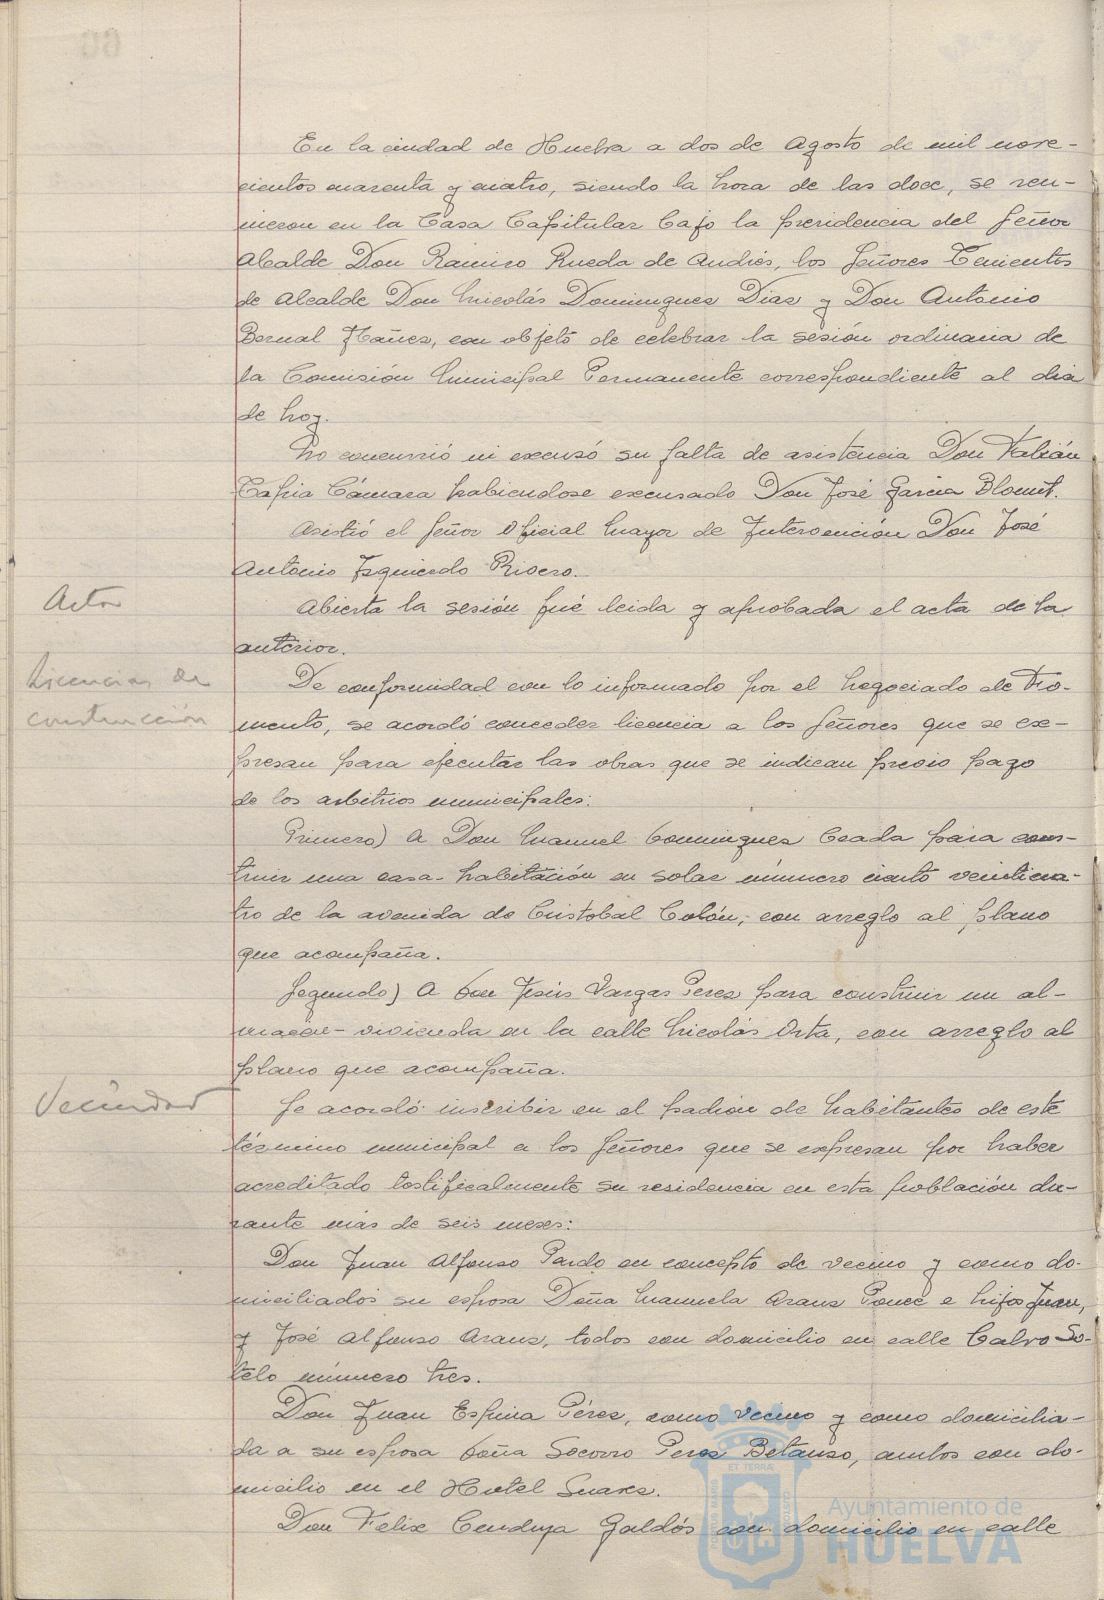 En la ciudad de Huelva a dos de Agosto de mil nove-
cientos cuarenta y cuatro, siendo la hora de las doce, se reu-
nieron en la Casa Capitular bajo la presidencia del Señor
Alcalde Don Ramiro Rueda de Andrés, los Señores Tenientes
de Alcalde Don Nicolás Domingues Dias y Don Antonio
Bernal Yañez, con objeto de celebrar la sesión ordinaria de
la Comisión Municipal Permanente correspondiente al dia
de hoy.
No concurrió ni excusó su falta de asistencia Don Fabián
Tapia Cámara habiendose excusado Don José Garcia
Asistió el Señor Oficial Mayor de Intervención Don José
Antonio Izquierdo Rivero.
Acta
Abierta la sesión fué leida y aprobada el acta de la
anterior.
Licencias de
construcción
De conformidad con lo informado por el Negociado de Fo-
mento, se acordó conceder licencia a los Señores que se ex-
presan para ejecutar las obras que se indican previo pago
de los arbitrios municipales:
Primero) A Don Manuel Domingues Ceada para cons-
truir una casa-habitación en solar número ciento veinticua-
tro de la avenida de Cristobal Colón, con arreglo al plano
que acompaña.
Segundo) A Don Jesús Vargas Peres para construir un al-
macén-vivienda en la calle Nicolás Orta, con arreglo al
plano que acompaña.
Vecindad
Se acordó inscribir en el padrón de habitantes de este
término municipal a los Señores que se expresan por haber
acreditado testificalmente su residencia en esta población du-
rante más de seis meses:
Don Juan Alfonso Pardo en concepto de vecino y como do-
miciliados su esposa Doña Manuela Arans Ponce e hijos Juan,
y José Alfonso Arans, todos con domicilio en calle Calvo So-
telo número tres.
Don Juan Espina Pérez, como vecino y como domicilia-
da a su esposa Doña Socorro Peres Betanso, ambos con do-
micilio en el Hotel Suares.
Don Felix Galdós con domicilio en calle
Ayuntamiento de
HUELVA